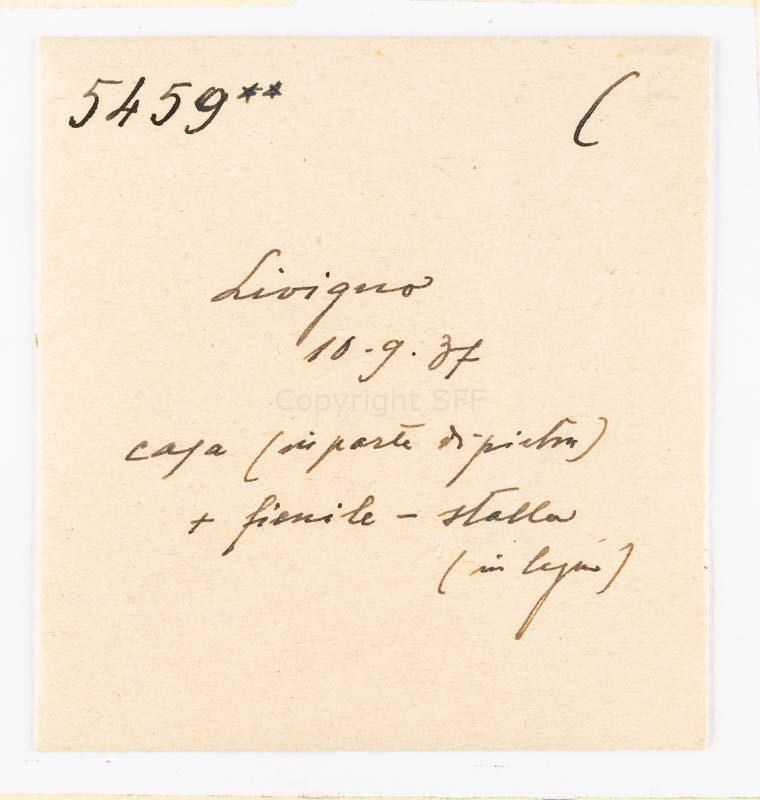 5459** (
Livigno
10-9.37
Copyright SFF
casa (in parte di pietra)
+ fienile - stalla
(in legno)